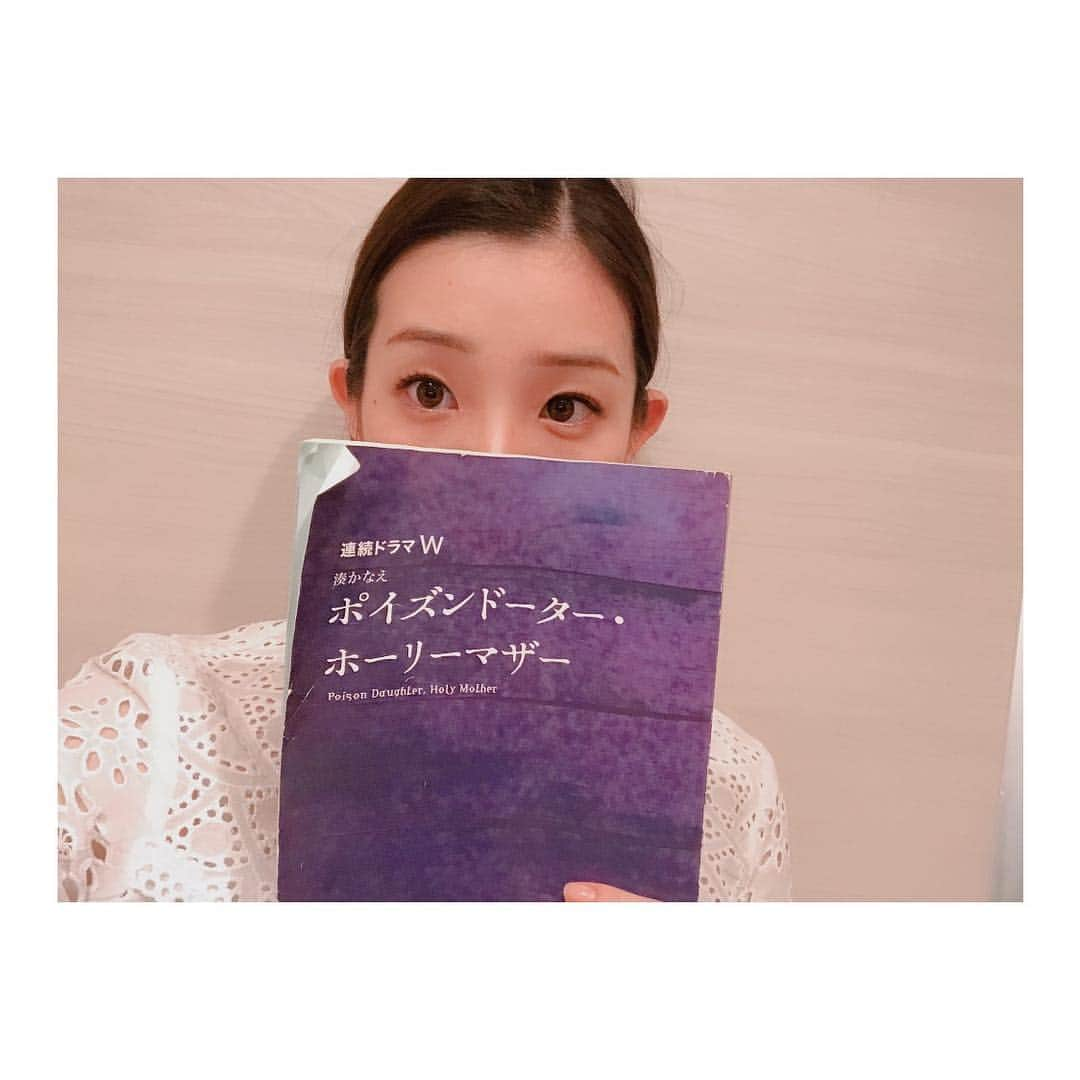 連続ドラマW
湊かなえ
ポイズンドーター・
ホーリーマザー
Poison Daughter, Holy Mother